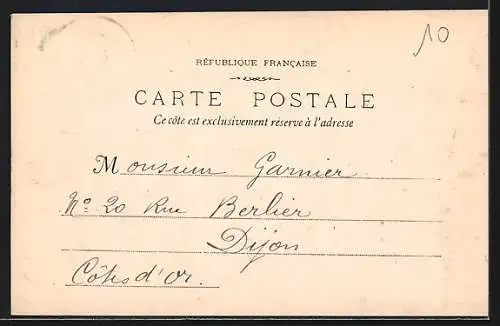 10
RÉPUBLIQUE FRANÇAISE
CARTE POSTALE
Ce côté est exclusivement réservé à l'adresse
Monsieur Garnier
Nº 20 Rue Berlier
Dijon
Côtes d'Or.